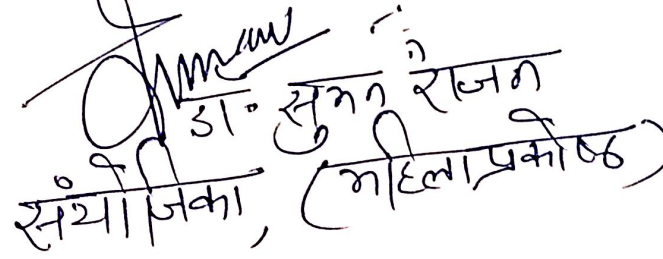 डा० सुमन रंजन
संयोजिका, (महिला प्रकोष्ठ)